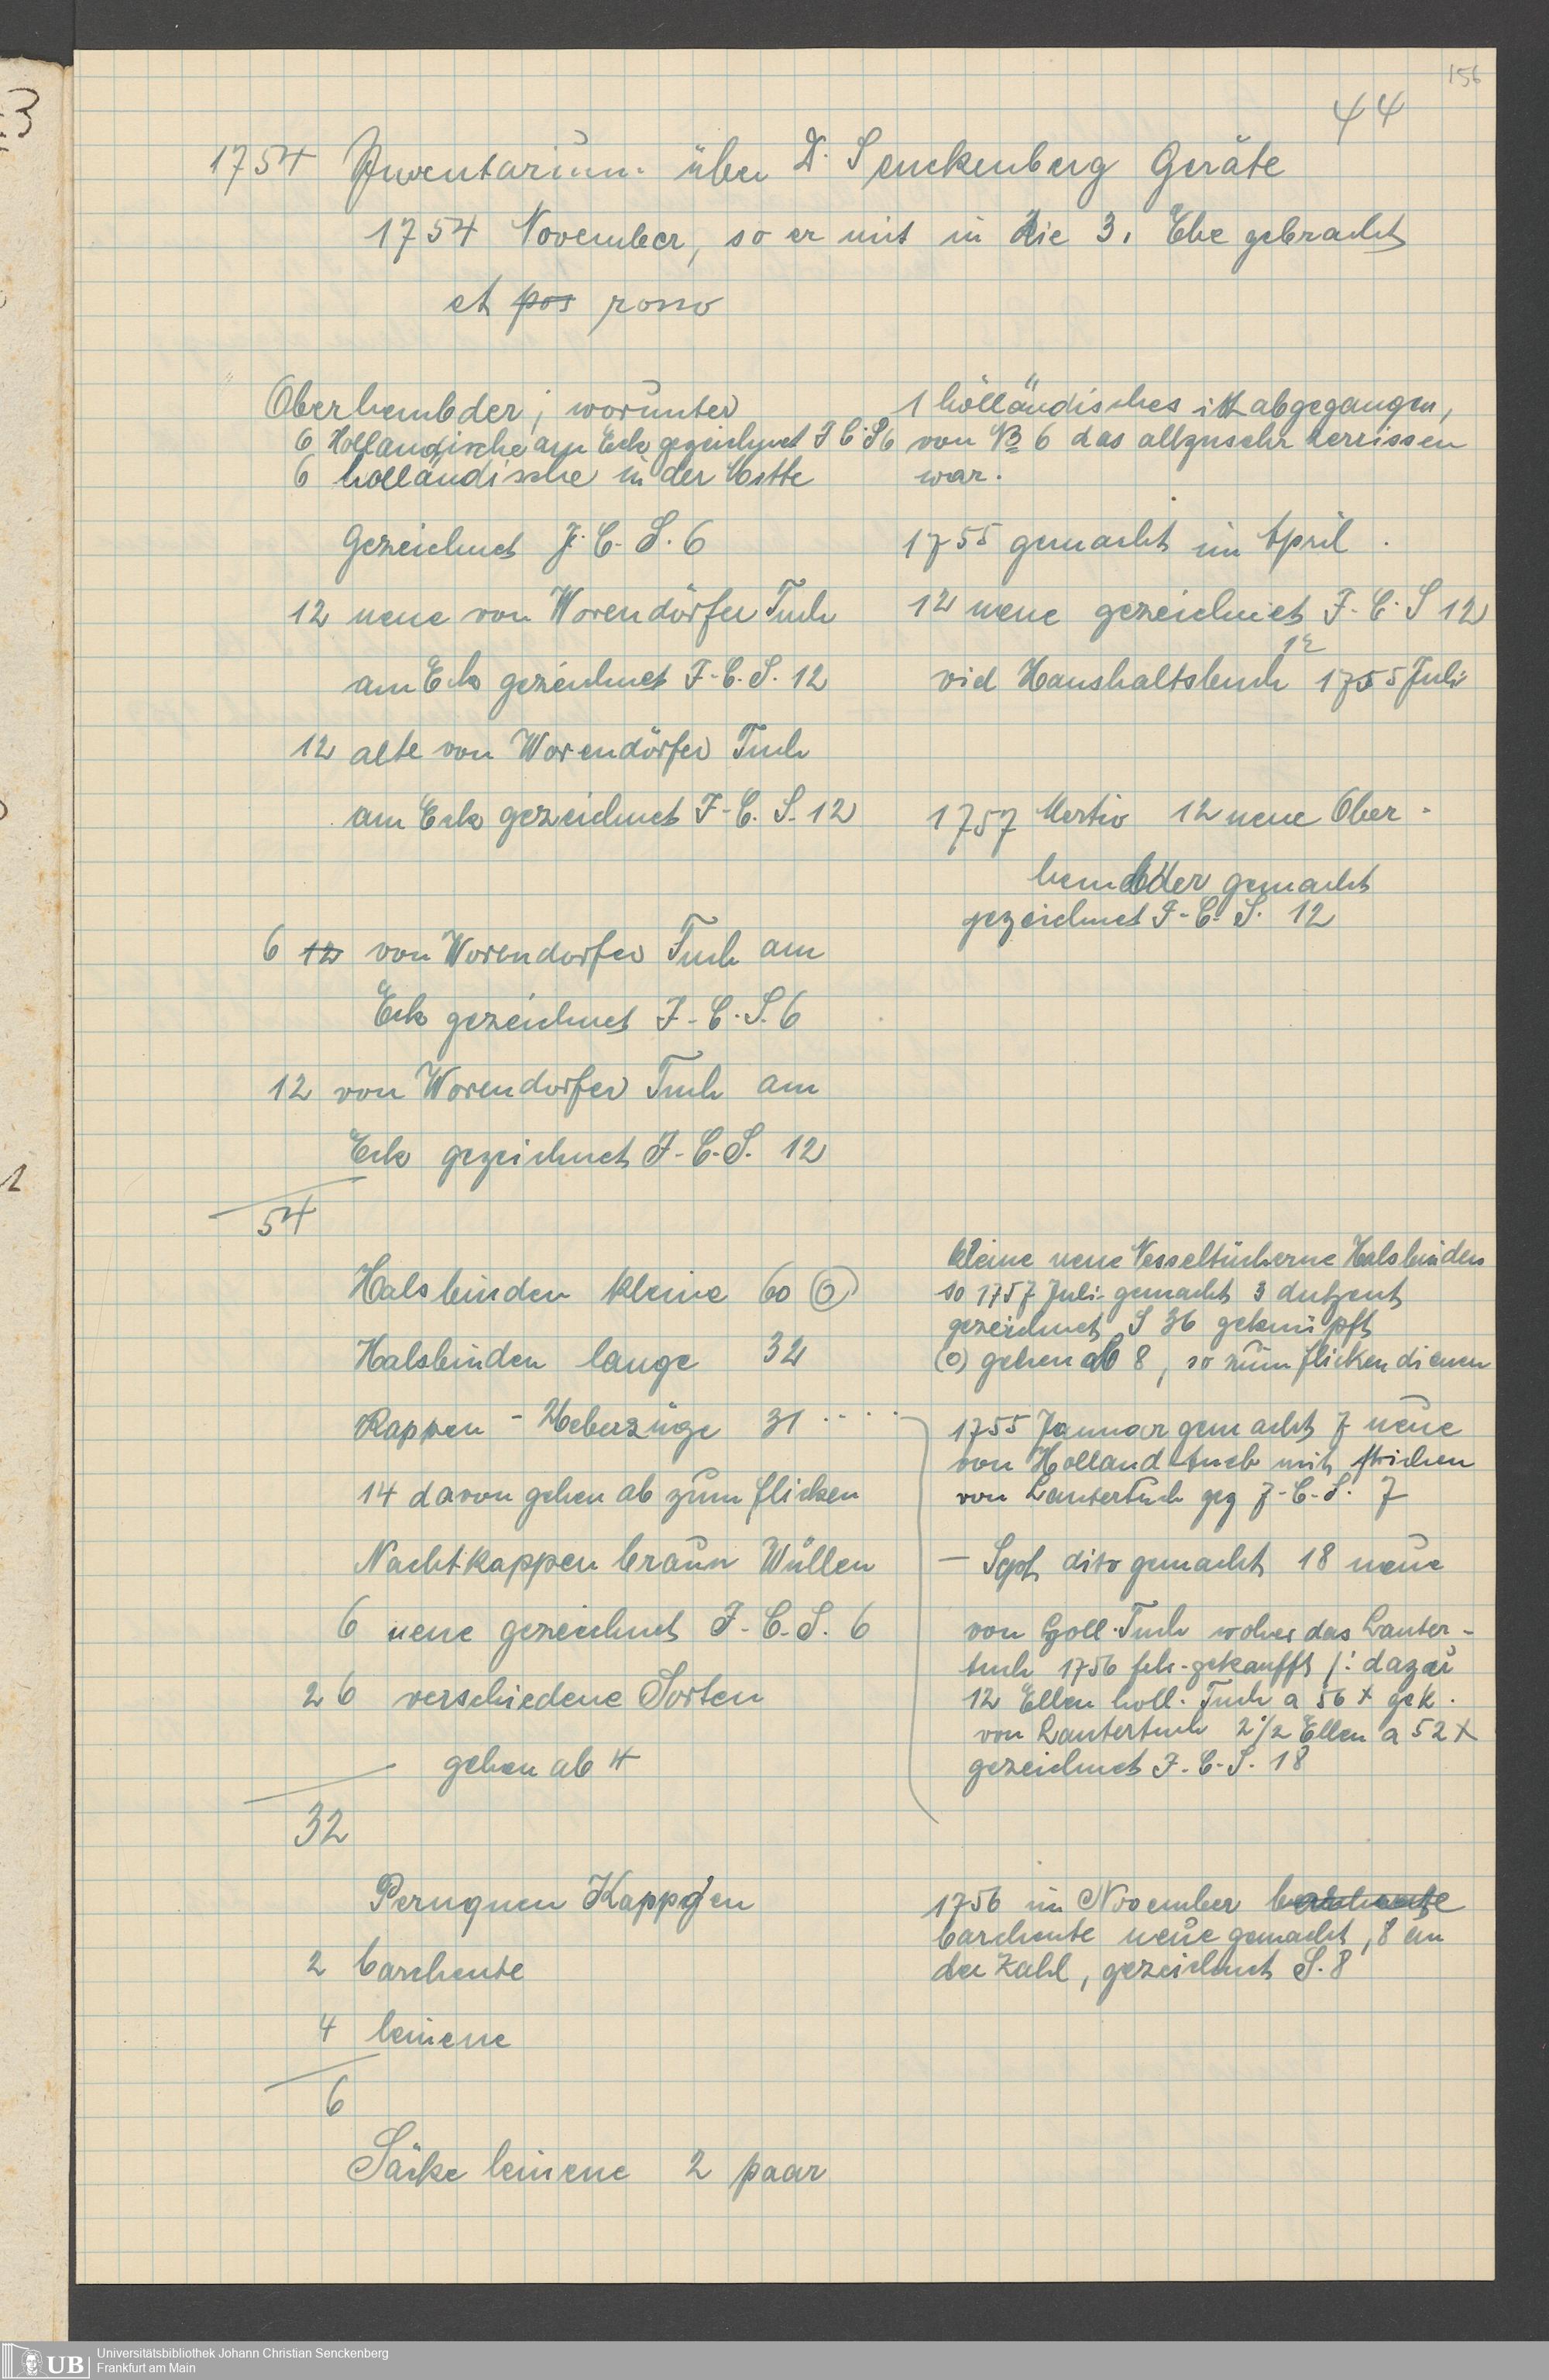 156
44
1754 Inventarium über D. Senckenberg Geräte
1754 November, so er mit in die 3. Ehe gebracht
et pos porro
Oberhembder, worunter
6 Holländische am Eck gezeichnet J C S 6
6 holländische in der Mitte
gezeichnet J. C. S. 6
12 neue von Worendörfer Tuch
am Eck gezeichnet J. C. S. 12
12 alte von Worendörfer Tuch
am Eck gezeichnet J. C. S. 12
6 12 von Worendorfer Tuch am
Eck gezeichnet J. C. S. 6
12 von Worendorfer Tuch am
Eck gezeichnet J. C. S. 12
54
1 holländisches ist abgegangen,
von 6 das allzusehr zerrissen
war.
1755 gemacht im April.
12 neue gezeichnet J. C. S 12
vid Haushaltsbuch 1755 Juli
1757 Martio 12 neue Ober-
hembder gemacht
gezeichnet J. C. S. 12
Halsbinden kleine 60 (0)
Halsbinden lange 32
Kappen-Ueberzüge 31 ....
14 davon gehen ab zum flicken
Nachtkappen braun Wüllen
6 neue gezeichnet J. C. S. 6
26 verschiedene Sorten
gehen ab 4
32
kleine neue Nesseltücherne Halsbinden
so 1757 Juli gemacht 3 dutzent
gezeichnet S 36 geknüpft
(0) gehen ab 8, so zum flicken dienen
1755 Januar gemacht 7 neue
von Holland tuch mit strichen
von Lautertuch gez J. C. S. 7
- Sept dito gemacht 18 neue
von holl. Tuch wobei das Lauter-
tuch 1756 febr. gekaufft /: dazu
12 Ellen holl. Tuch a 56 x gek.
von Lautertuch 2 1/2 Ellen a 52 x
gezeichnet J. C. S. 18
Peruquen Kappgen
2 barchente
4 leinene
6
1756 im November
barchente neue gemacht, 8 an
der Zahl, gezeichnet S. 8
Säcke leinene 2 paar
UB
Universitätsbibliothek Johann Christian Senckenberg
Frankfurt am Main